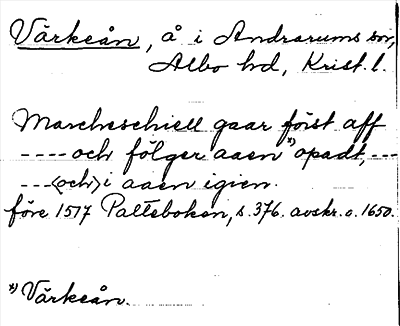 Värkeån, å i Andrarums sn,
Albo hd, Krist. l.
Marcheschiell gaar först aff
---- och fölger aaen *) opadt, ---
--- <och> i aaen igien.
före 1517 Palteboken, s. 376. avskr. o. 1650.
*) Värkeån.